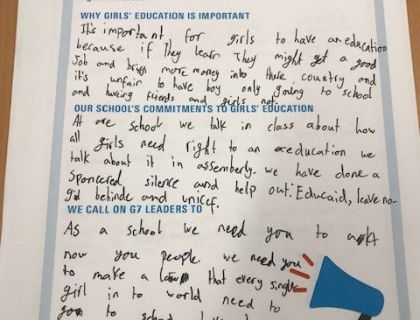 WHY GIRLS' EDUCATION IS IMPORTANT
It's important for girls to have an education
because if They learn They might get a good
Job and bring more money into there country and
it's unfair to have boy only going to school
and having friends and girls not.
OUR SCHOOL'S COMMITMENTS TO GIRLS' EDUCATION
At are school we talk in class about how
all girls need right to an education we
talk about it in assemberly. we have done a
Sponcered silence and help out: Educaid, leave no-
behinde and unicef.
WE CALL ON G7 LEADERS TO
As a school we need you to
now you people we need you
to make a that every single
girl in to world need to
to school